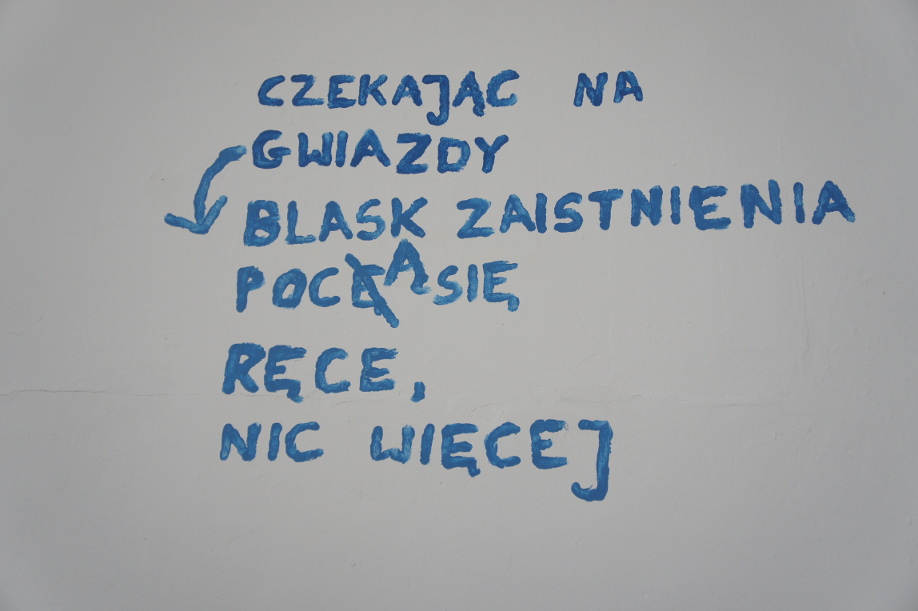 CZEKAJĄC NA
GWIAZDY
BLASK ZAISTNIENIA
POCĄ SIĘ
RĘCE,
NIC WIĘCEJ